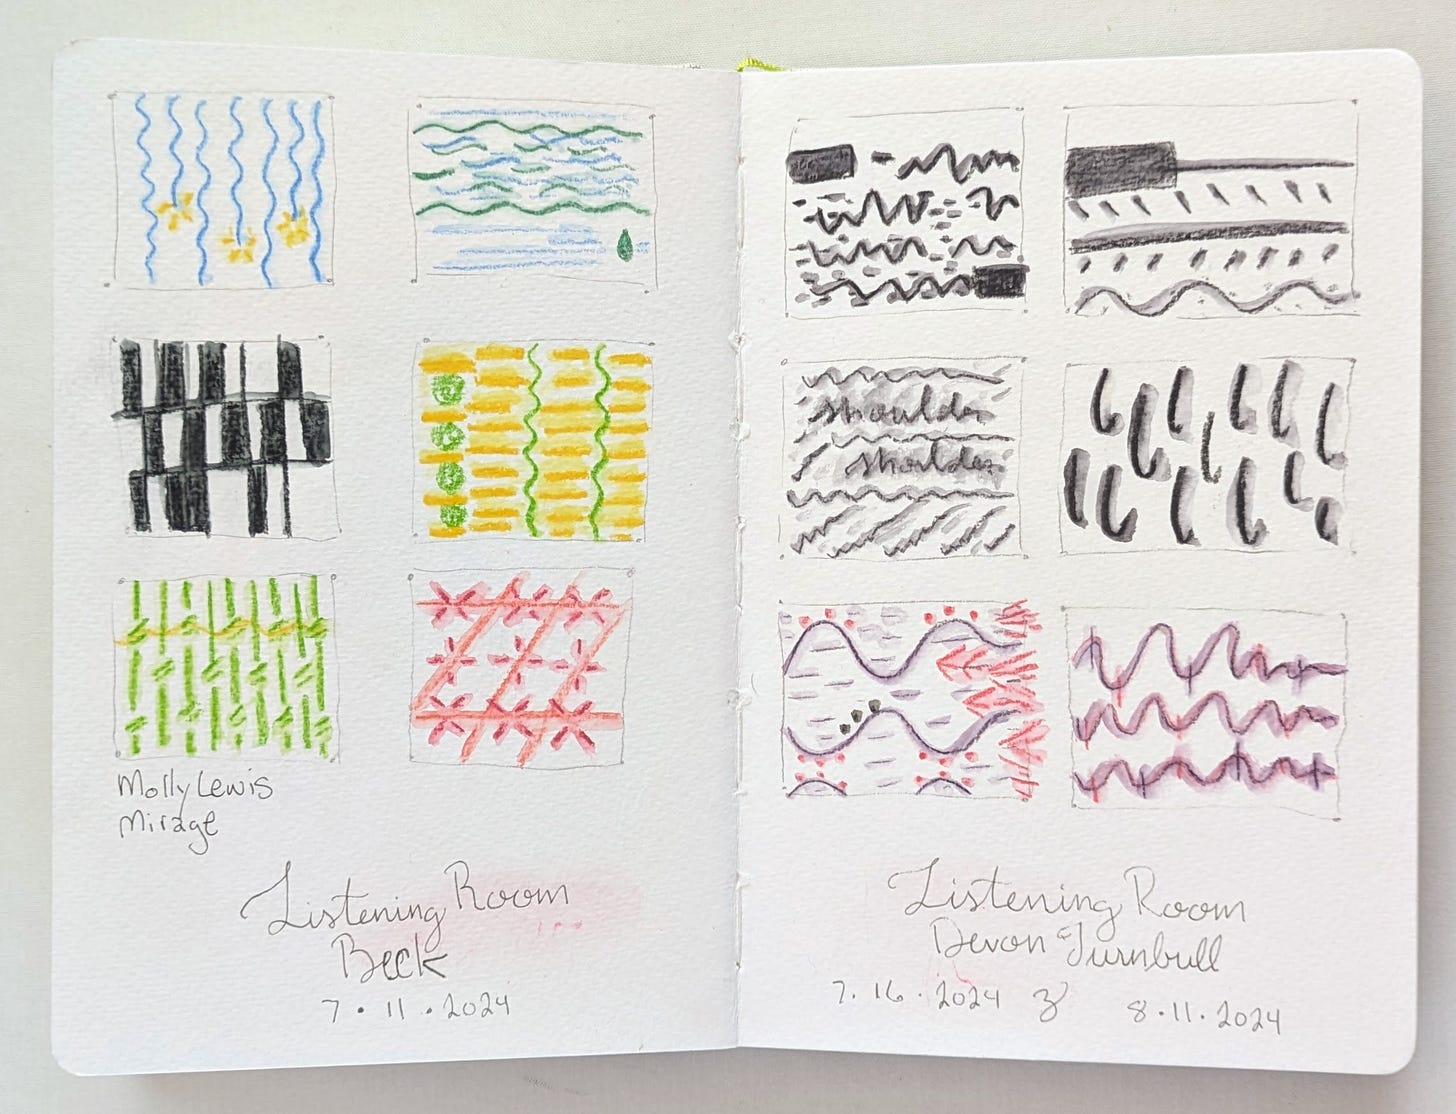 Molly Lewis
Mirage
Listening Room
Beck
7.11.2024
shoulder
shoulder
Listening Room
Devon Turnbull
7.16.2024 & 8.11.2024